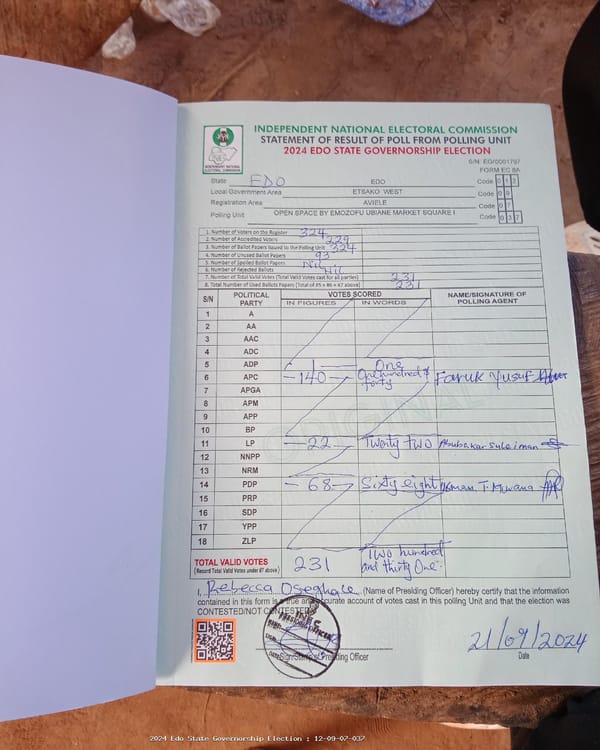 INDEPENDENT NATIONAL ELECTORAL COMMISSION
STATEMENT OF RESULT OF POLL FROM POLLING UNIT
2024 EDO STATE GOVERNORSHIP ELECTION
INDEPENDENT NATIONAL ELECTORAL COMMISSION
S/N: EG/0001797
FORM EC 8A
State EDO EDO Code 0 1 2
Local Government Area ETSAKO WEST Code 0 9
Registration Area AVIELE Code 0 7
Polling Unit OPEN SPACE BY EMOZOFU UBIANE MARKET SQUARE I Code 0 3 7
1. Number of Voters on the Register 324
2. Number of Accredited Voters
3. Number of Ballot Papers Issued to the Polling Unit 324
4. Number of Unused Ballot Papers 93
5. Number of Spoiled Ballot Papers Nil
6. Number of Rejected Ballots Nil
7. Number of Total Valid Votes (Total Valid Votes cast for all parties) 231
8. Total Number of Used Ballots Papers (Total of #5 + #6 + #7 above) 231
S/N POLITICAL PARTY VOTES SCORED NAME/SIGNATURE OF POLLING AGENT
IN FIGURES IN WORDS
1 A
2 AA
3 AAC
4 ADC
5 ADP 1 One
6 APC - 140 - One hundred & forty Faruk Yusuf
7 APGA
8 APM
9 APP
10 BP
11 LP - 22 - Twenty two Abubakar Suleiman
12 NNPP
13 NRM
14 PDP - 68 - Sixty eight
15 PRP
16 SDP
17 YPP
18 ZLP
TOTAL VALID VOTES 231 Two hundred and thirty One
(Record Total Valid Votes under #7 above)
I, Rebecca Oseghale (Name of Presiding Officer) hereby certify that the information
contained in this form is a true and accurate account of votes cast in this polling Unit and that the election was
CONTESTED/NOT CONTESTED
21/09/2024
Sign/Stamp of Presiding Officer
Date
2024 Edo State Governorship Election : 12-09-07-037